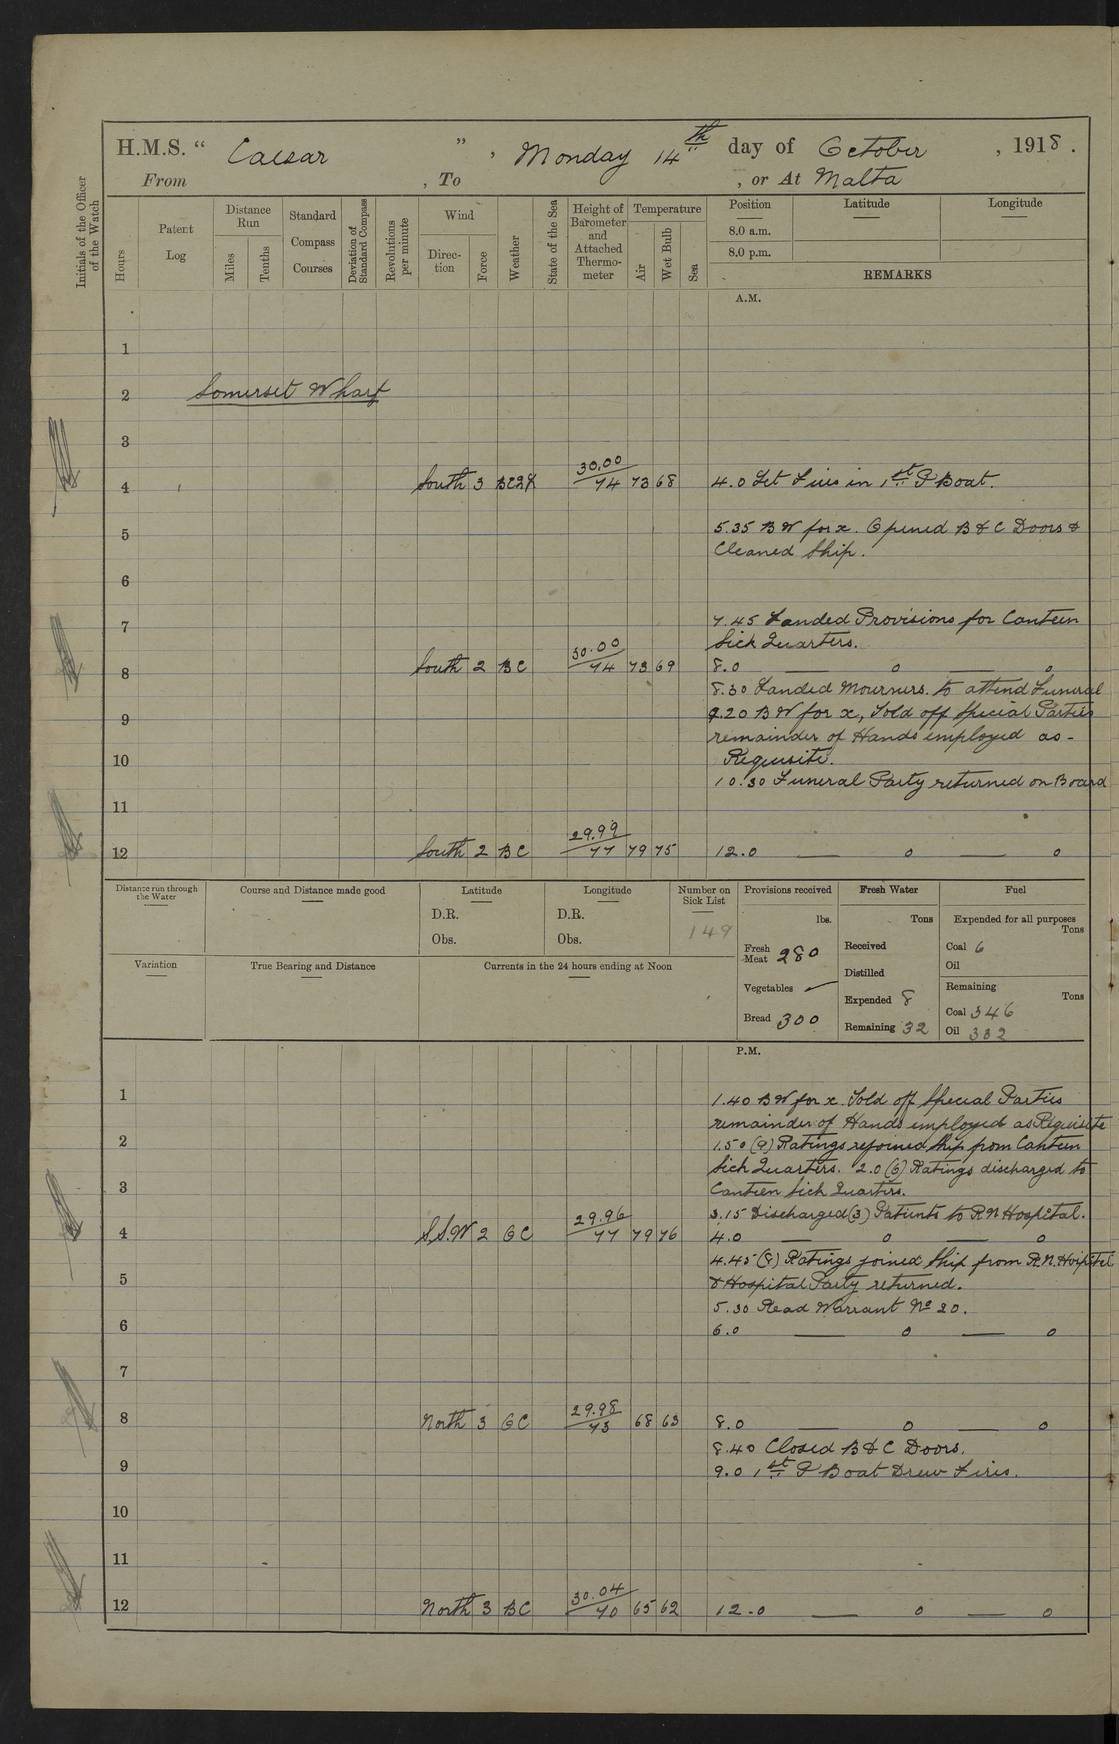 H.M.S. “ Caesar ” , Monday 14th day of October , 1918 .
From , To , or At Malta
Initials of the Officer of the Watch
Hours
Patent Log
Distance Run
Miles
Tenths
Standard Compass Courses
Deviation of Standard Compass
Revolutions per minute
Wind
Direc-tion
Force
Weather
State of the Sea
Height of Barometer and Attached Thermo-meter
Temperature
Air
Wet Bulb
Sea
Position
8.0 a.m.
8.0 p.m.
Latitude
Longitude
REMARKS
A.M.
1
2 Somerset Wharf
3
4 South 3 30.00/74 73 68 4.0 Let Fires in 1st P Boat.
5 5.35 BW for x. Opened B & C Doors &
Cleaned Ship.
6
7 7.45 Landed Provisions for Canteen
Sick Quarters.
8 South 2 BC 30.00/74 73 69 8.0 — 0 — 0
8.30 Landed Mourners. to attend Funeral
9 9.20 BW for x, Told off Special Parties
remainder of Hands employed as-
10 Requisite.
10.30 Funeral Party returned on Board
11
12 South 2 BC 29.99/77 79 75 12.0 — 0 — 0
Distance run through the Water
Course and Distance made good
Latitude
D.R.
Obs.
Longitude
D.R.
Obs.
Number on Sick List
149
Provisions received
lbs.
Fresh Meat 280
Vegetables ✓
Bread 300
Fresh Water
Tons
Received
Distilled
Expended 8
Remaining 32
Fuel
Expended for all purposes
Tons
Coal 6
Oil
Remaining
Tons
Coal 346
Oil 332
Variation
True Bearing and Distance
Currents in the 24 hours ending at Noon
P.M.
1 1.40 BW for x. Told off Special Parties
remainder of Hands employed as Requisite
2 1.50 (9) Ratings rejoined Ship from Canteen
Sick Quarters. 2.0 (6) Ratings discharged to
3 Canteen Sick Quarters.
3.15 Discharged (3) Patients to R.N Hospital.
4 S.S.W 2 GC 29.96/77 79 76 4.0 — 0 — 0
4.45 (8) Ratings joined Ship from R.N. Hospital
5 & Hospital Party returned.
5.30 Read Warrant No 20.
6 6.0 — 0 — 0
7
8 North 3 GC 29.98/73 68 63 8.0 — 0 — 0
8.40 Closed B & C Doors.
9 9.0 1st P Boat Drew Fires.
10
11
12 North 3 BC 30.04/70 65 62 12.0 — 0 — 0